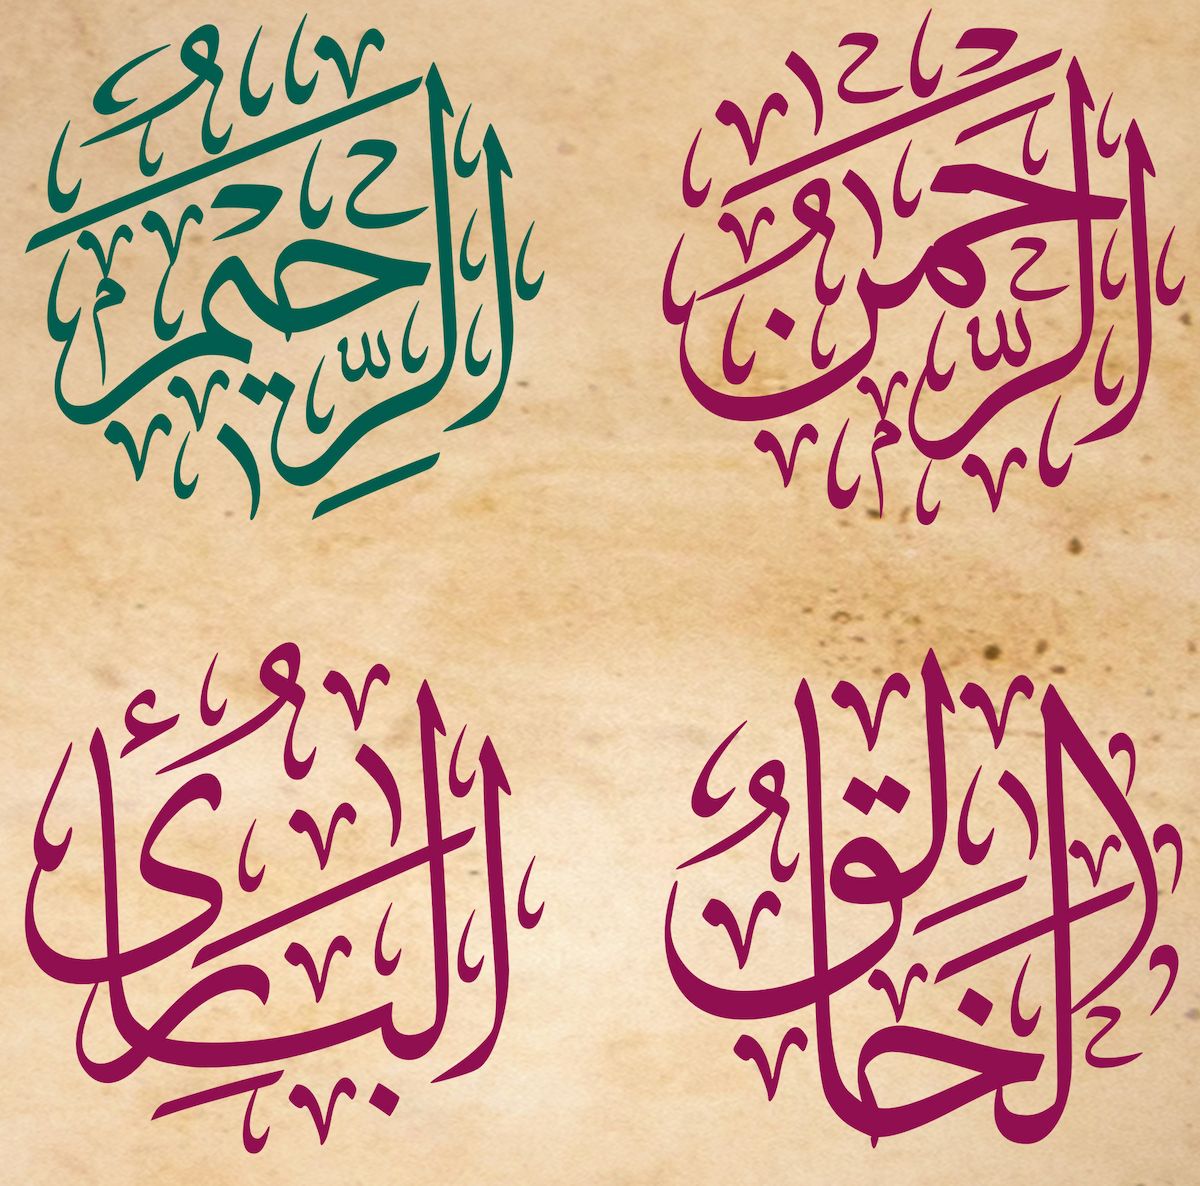 الرَّحْمَنُ
الرَّحِيمُ
الْخَالِقُ
الْبَارِئُ